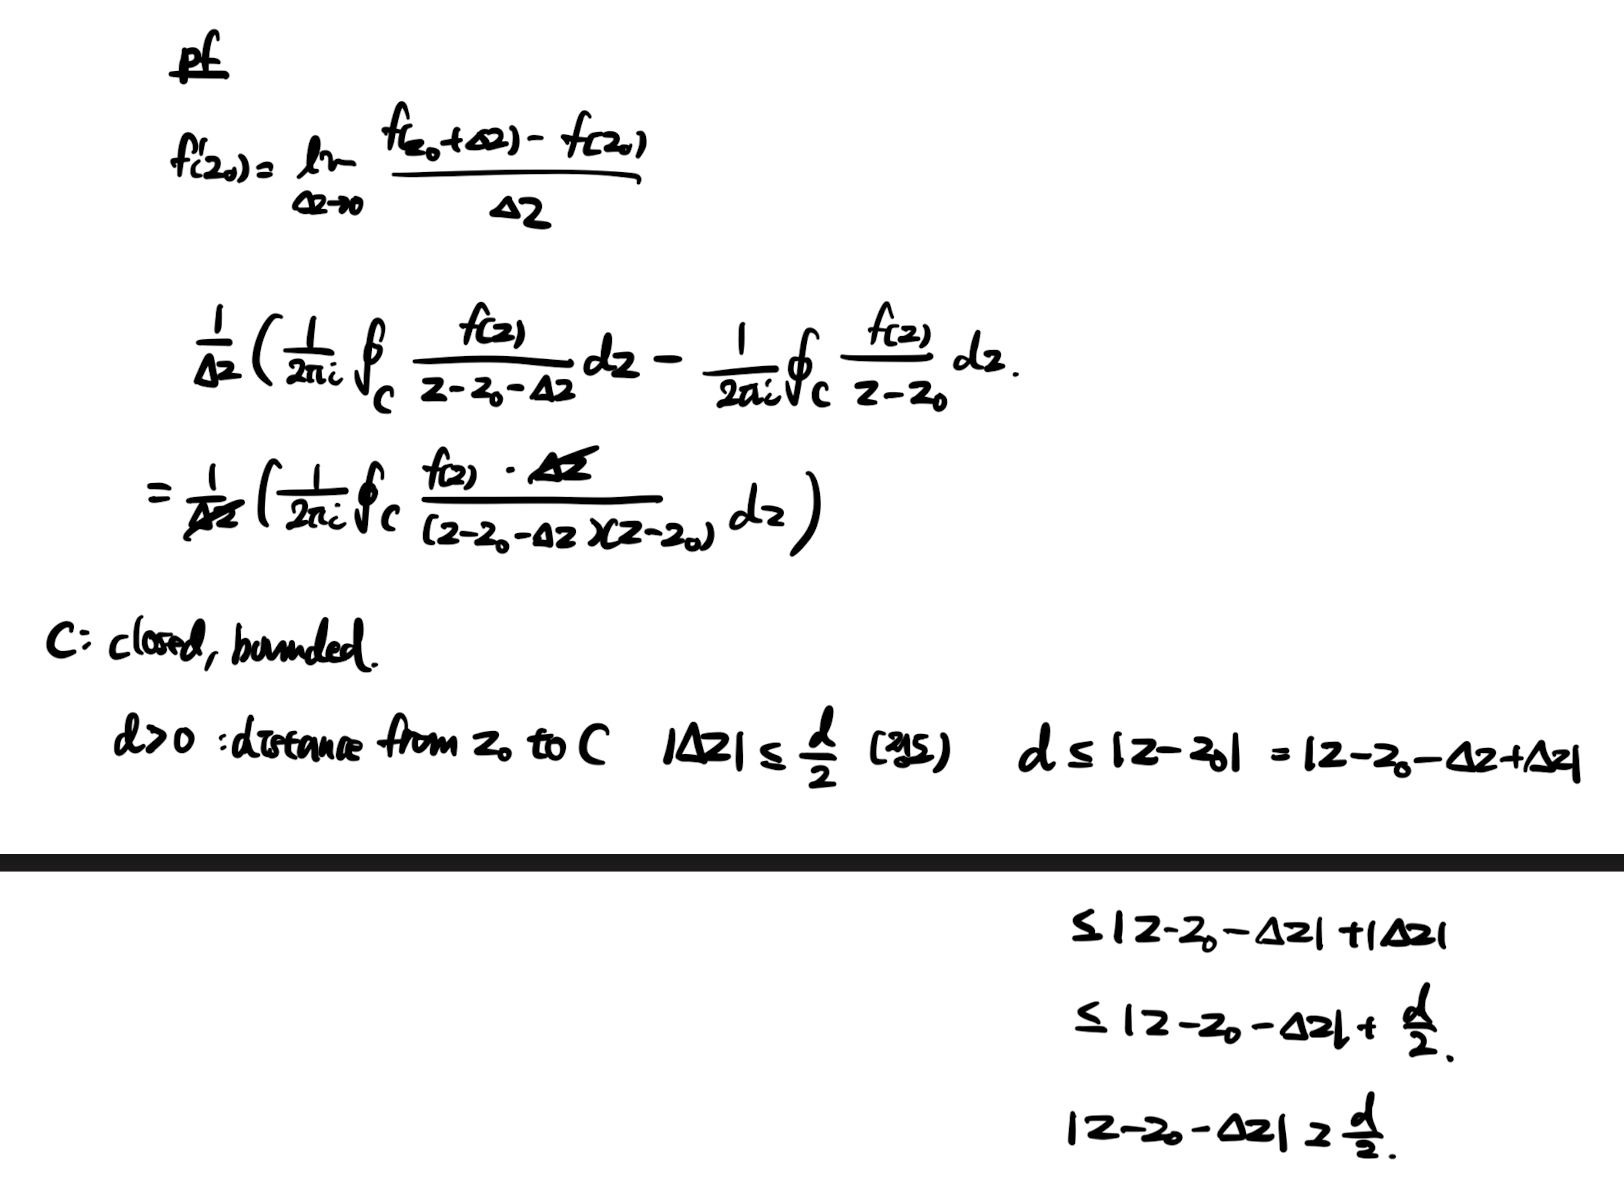 pf
f'(z₀) = lim_{Δz→0} \frac{f(z₀+Δz) - f(z₀)}{Δz}
\frac{1}{Δz} ( \frac{1}{2πi} ∮_C \frac{f(z)}{z-z₀-Δz} dz - \frac{1}{2πi} ∮_C \frac{f(z)}{z-z₀} dz.
= \frac{1}{Δz} ( \frac{1}{2πi} ∮_C \frac{f(z) · Δz}{(z-z₀-Δz)(z-z₀)} dz )
C: closed, bounded.
d>0 : distance from z₀ to C |Δz| ≤ \frac{d}{2} d ≤ |z-z₀| = |z-z₀-Δz+Δz|
≤ |z-z₀-Δz| + |Δz|
≤ |z-z₀-Δz| + \frac{d}{2}.
|z-z₀-Δz| ≥ \frac{d}{2}.